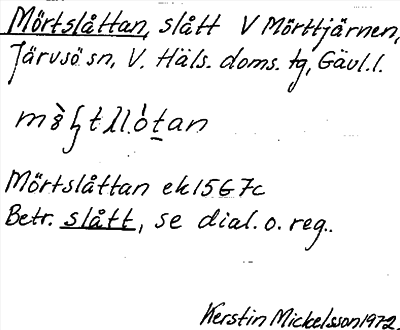 Mörtslåttan, slått V Mörttjärnen,
Järvsö sn, V. Häls. doms. tg, Gävl.l.
Mörtslåttan ek15G7c
Betr. slått, se dial. o. reg..
Kerstin Mickelsson 1972.